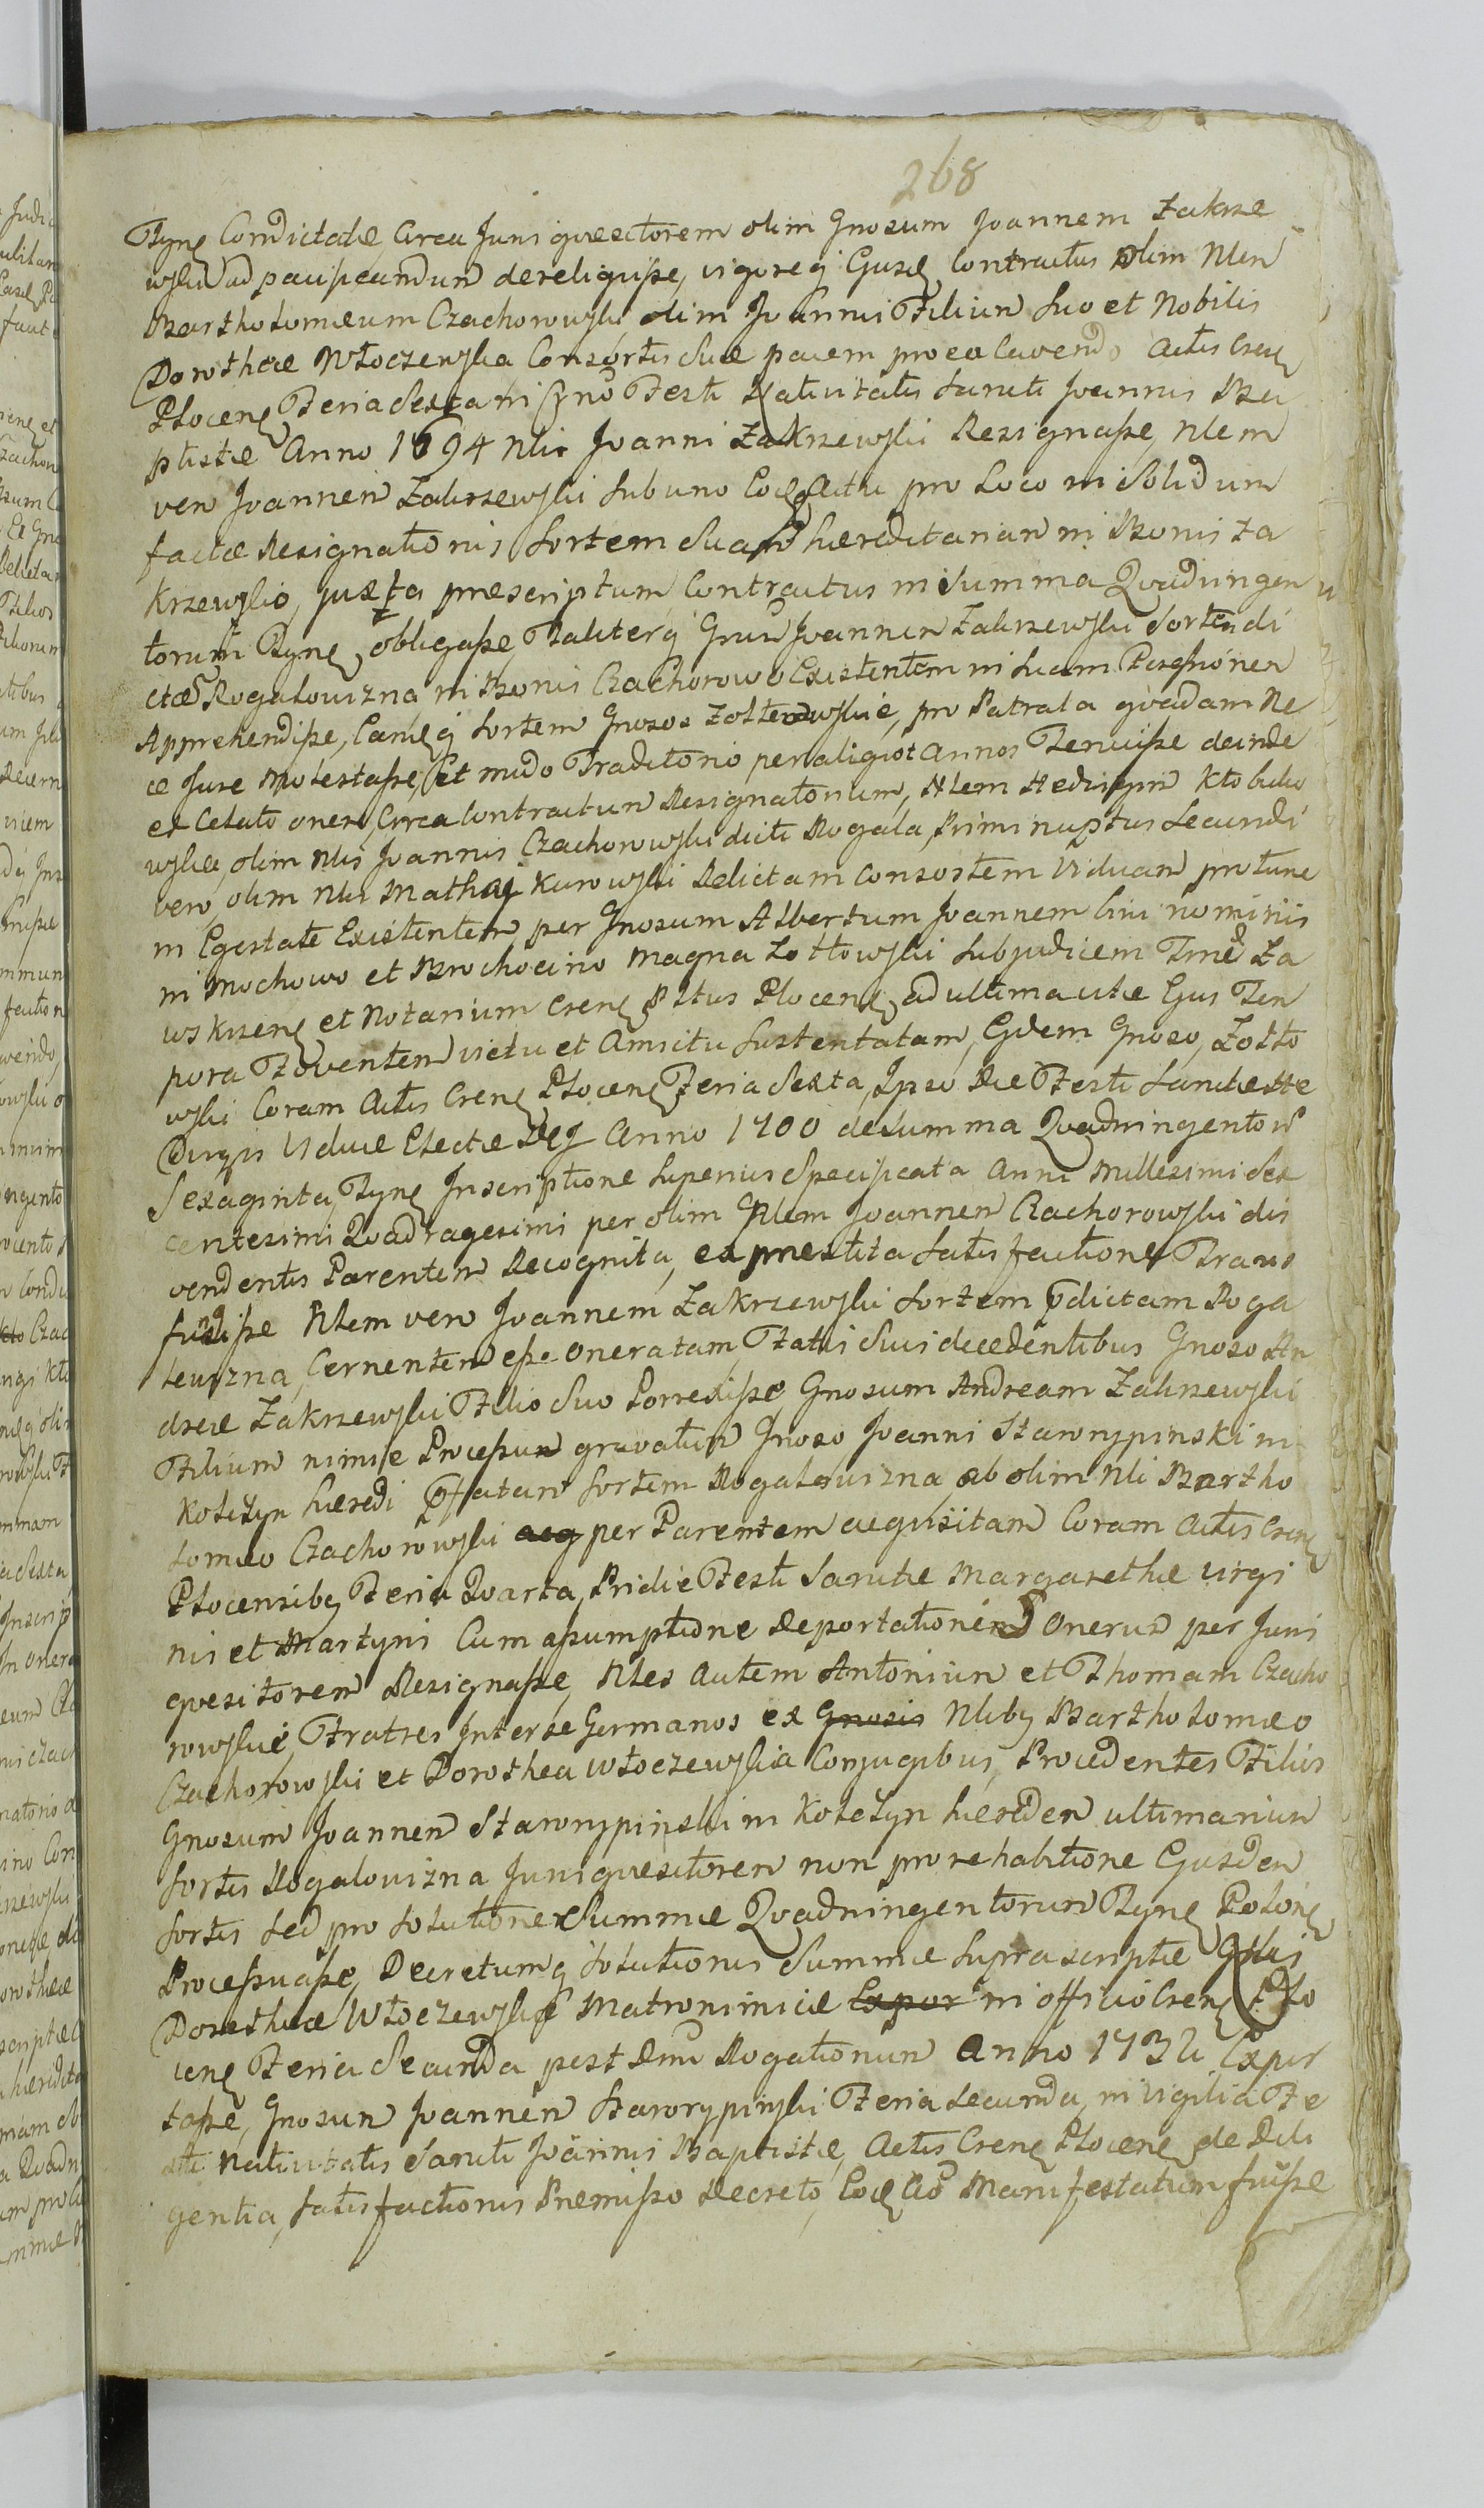 268
Flyne Condictatæ circa Juris quæsitorem olim Gnosum Joannem Zakrze
wski ad pacificandum dereliquisse, vigoreq Ejusd Contractus olim Nlem
Bartholomæum Czachorowski olim Joannis Filium suo et Nobilis
Dorotheæ Włoczewska Consortis suæ pacem pro ea cavendo Actis Cren
Plocen Feria Sexta in Crno Festi Nativitatis Sancti Joannis Ba
ptistæ Anno 1694 Nli Joanni Zakrzewski Resignasse, Nlem
vero Joannem Zakrzewski sub uno Eodq Actu pro Loco in Solidum
factæ Resignationis Sortem Suam hæreditariam in Bonis Za
krzewko, juxta præscriptum Contractus in Summa Quadringen
torum Flyne obligasse, Taliterq Gnum Joannem Zakrzewski Sortem di
ctæ Rogalowizna in Bonis Czachorowo Existentem in suam Possessionem
Apprehendisse, Eamq Sortem Gnosos Zołtowskie, pro Patrata quadam Ne
ce Jure Molestasse, Et modo Traditorio per aliquot Annos Tenuisse deinde
ex Celato onere, Circa Contractum Resignatorium, Nlem Hedvigim Kłobuko
wska, olim Nlis Joannis Czachorowski dicti Rogala, Primi nuptus Secundi
vero, olim Nlis Mathæi Kurowski Relictam Consortem Viduam pro tunc
in Egestate Existentem per Gnosum Albertum Joannem bini nominis
in Mochowo et Brochocino Magna Zołtowski Subjudicem Trræ Za
wskrzen et Notarium Cren Pltus Plocen, ad ultima vitæ Ejus Tem
pora Foventem victu et Amictu Sustentatam, Eidem Gnoso, Zołto
wski Coram Actis Cren Plocen Feria Sexta, Ipso Die Festi Sanctæ He
dvigis Viduæ Electæ Dei Anno 1700 de Summa Quadringentorum
Sexaginta, Flyne Inscriptione Superius Specificata Anni Millesimi Sex
centesimi Quadragesimi per olim Nlem Joannem Czachorowski dis
vendentis Parentem Recognita, ex præstita Satisfactione Trans
fudisse Nlem vero Joannem Zakrzewski Sortem pdictam Roga
lewizna, Cernentem esse oneratam, Fatis Suis decedentibus Gnoso An
dreæ Zakrzewski Filio Suo Porrexisse, Gnosum Andream Zakrzewski
Filium nimie Processum gravatum Gnoso Joanni Starorypinski in
Kołczyn hæredi pfatam Sortem Rogalowizna ab olim Nli Bartho
lomæo Czachorowski aeq per Parentem aequisitam Coram Actis Cren
Plocensibq Feria Quarta, Pridie Festi Sanctæ Margarethæ virgi
nis et Martyris Cum assumptione Deportationem Onerum per Juris
quæsitorem Resignasse, Nles Autem Antonium et Thomam Czacho
rowskie, Fratres Inter se Germanos ex Gnosis Nlibq Bartholomæo
Czachorowski et Dorothea Włoczewska Conjugibus, Procedentes Filios
Gnosum Joannem Starorypinski in Kołczyn hæredem ultimarium
Sortis Rogalowizna Juris quæsitorem non pro rehabitione Ejusdem
Sortis sed pro Solutione Summæ Quadringentorum Flyne Polone
Processuasse, Decretumq Solutionis Summæ Suprascriptæ Gnlis
Dorotheæ Włoczewska Matronimicæ Expor in officio Cren Plo
cen Feria Secunda post Dnu Rogationum Anno 1732 Expor
tasse, Gnosum Joannem Starorypinski Feria Secunda, in vigilia Fe
sti Nativitatis Sancti Joannis Baptistæ, Actis Cren Plocen de Dili
gentia, Satisfactionis Præmisso Decreto, Eod Ao Manifestatum fuisse